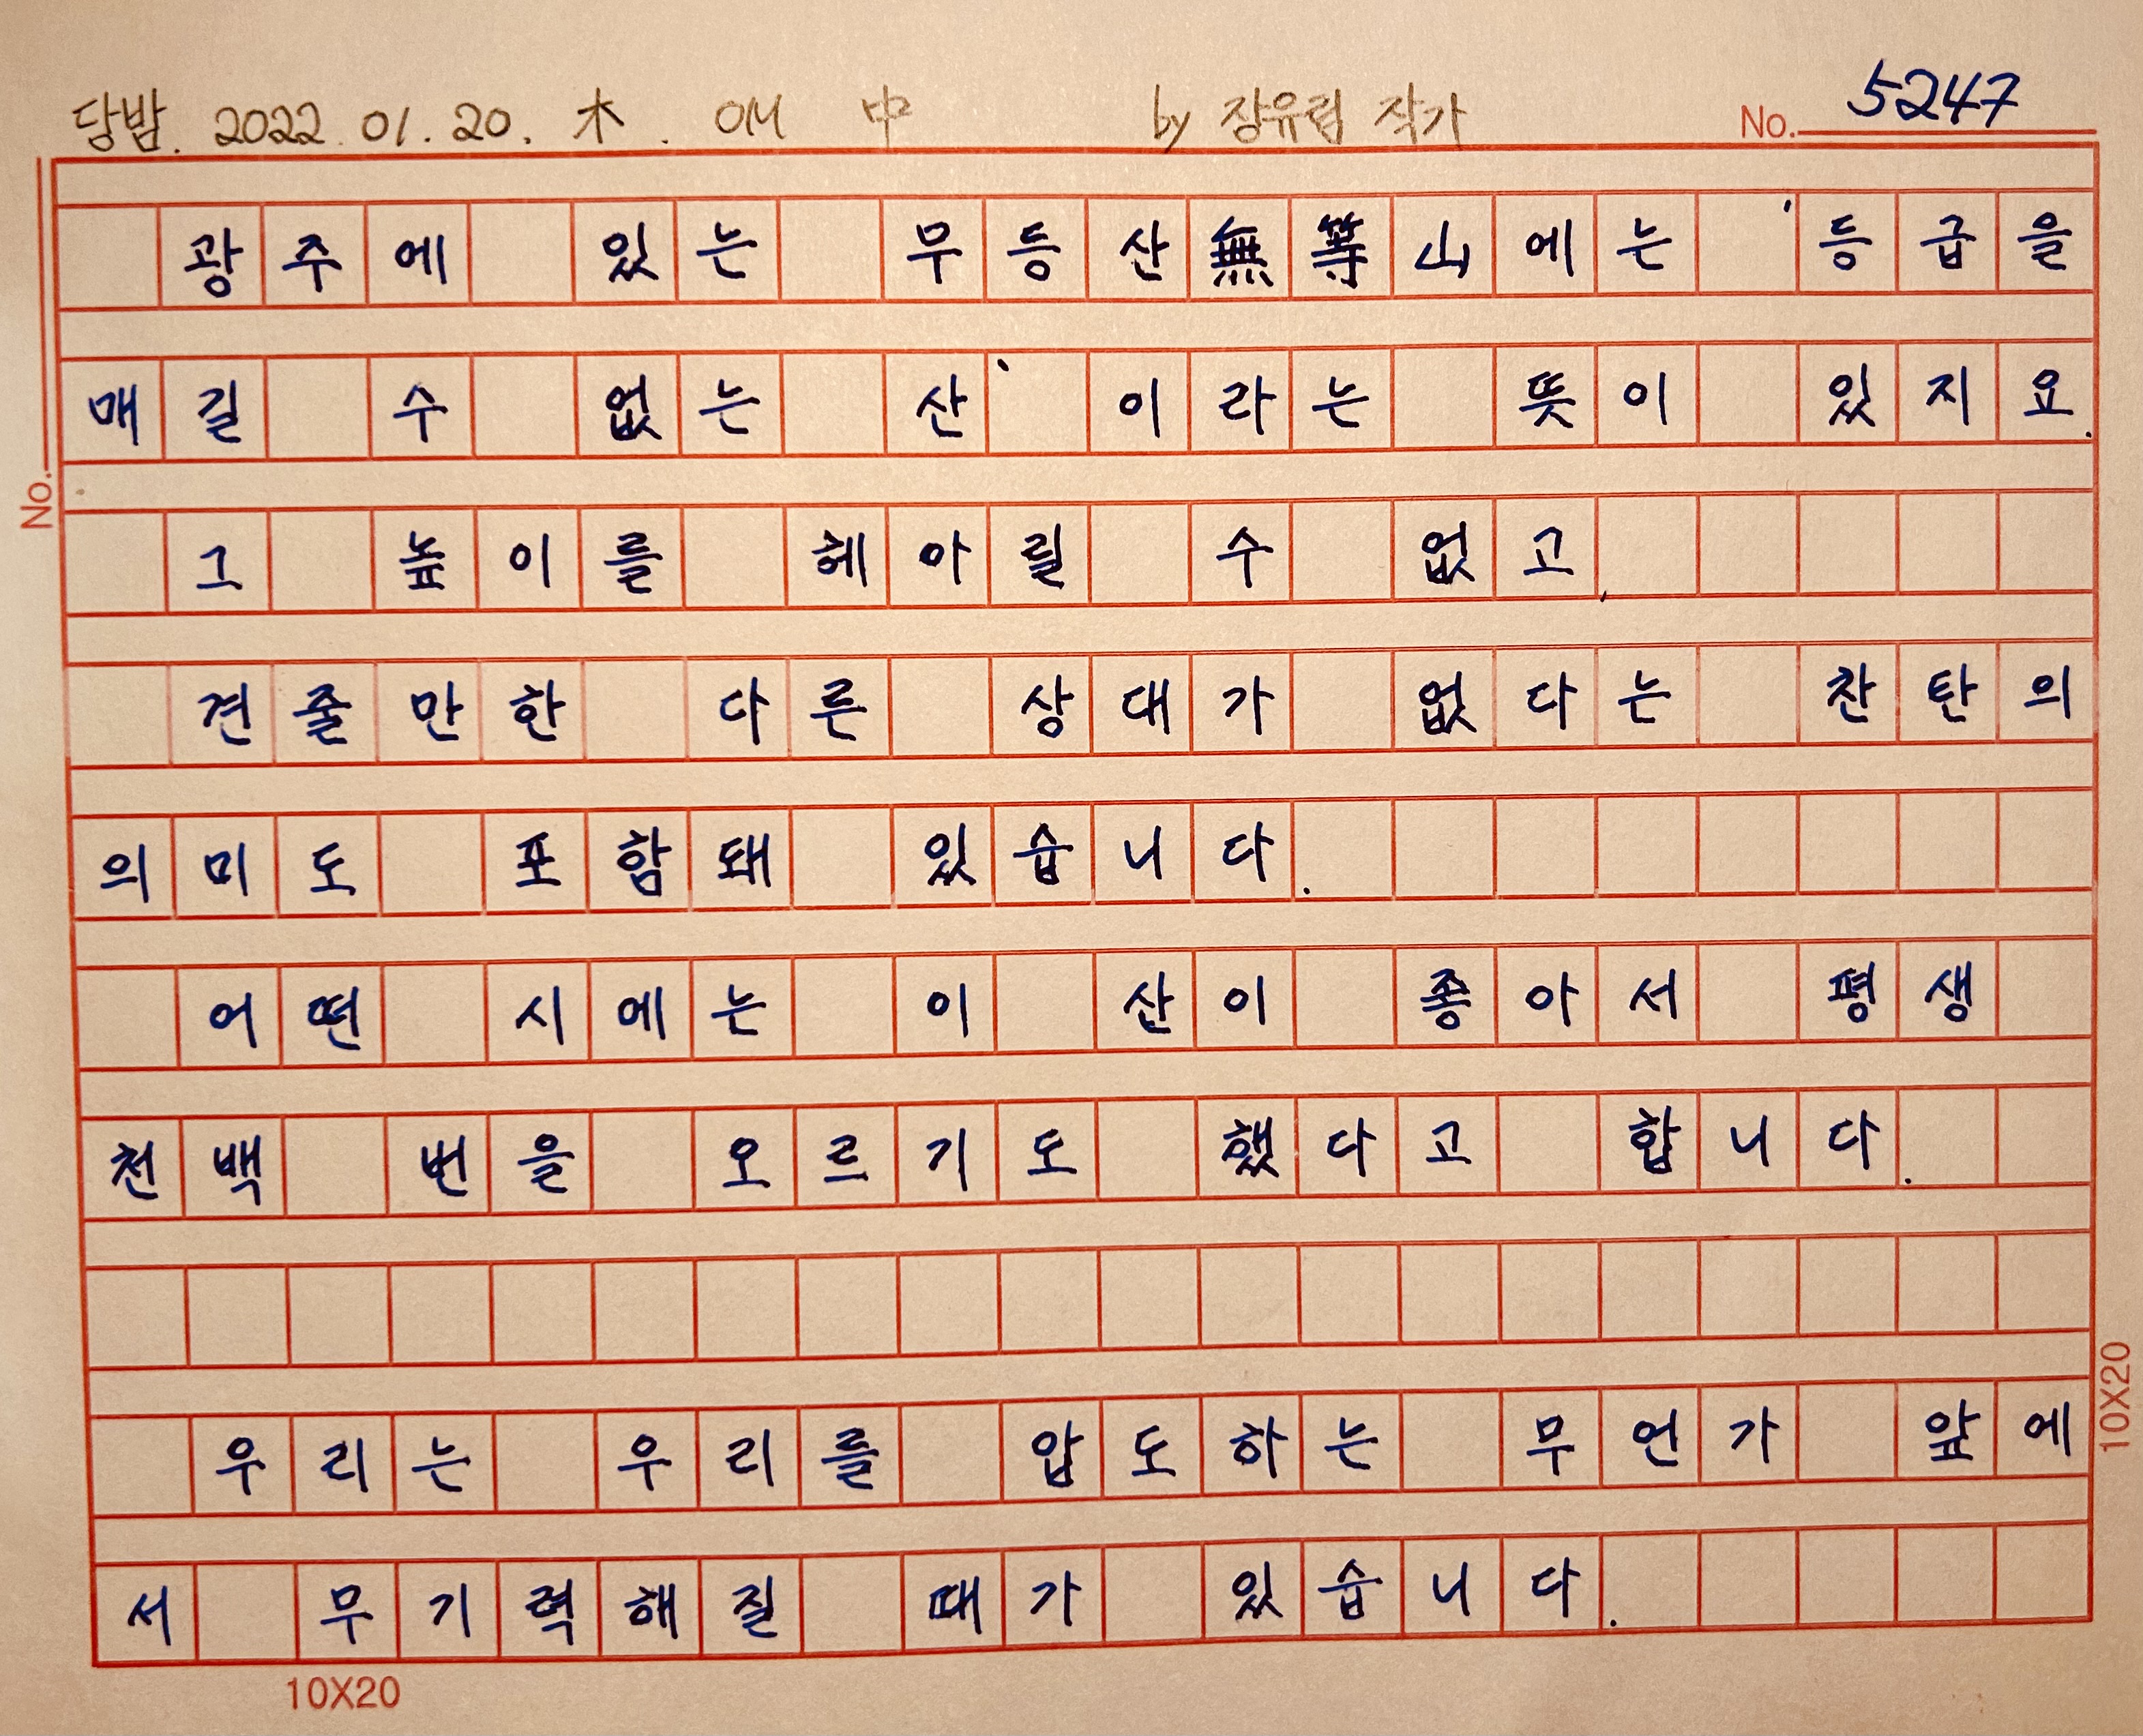 당밤. 2022. 01. 20. 木. 오버 中 by 장유림 작가 No. 5247
광주에 있는 무등산無等山에는 '등급을
매길 수 없는 산' 이라는 뜻이 있지요.
No.
그 높이를 헤아릴 수 없고,
견줄만한 다른 상대가 없다는 찬탄의
의미도 포함돼 있습니다.
어떤 시에는 이 산이 좋아서 평생
천백 번을 오르기도 했다고 합니다.
우리는 우리를 압도하는 무언가 앞에
서 무기력해질 때가 있습니다.
10X20
10X20